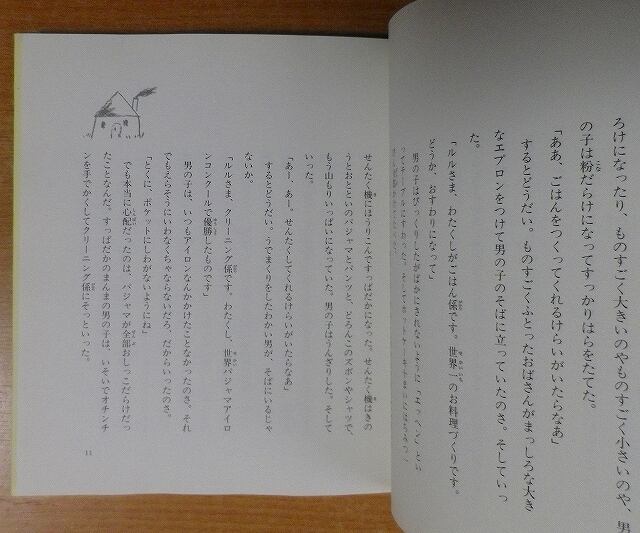 ろけになったり、ものすごく大きいのやものすごく小さいのや、男
の子は粉だらけになってすっかりはらをたてた。
「ああ、ごはんをつくってくれるけらいがいたらなあ」
するとどうだい。ものすごくふとったおばさんがまっしろな大き
なエプロンをつけて男の子のそばに立っていたのさ。そしていっ
た。
「ルルさま、わたくしがごはん係です。世界一のお料理づくりです。
どうか、おすわりになって」
男の子はびっくりしたがばかにされないように「エッヘン」とい
ってテーブルにすわった。そしてホットケーキ
せんたく機にほうりこんですっぱだかになった。せんたく機はきの
うとおとといのパジャマとパンツと、どろんこのズボンやシャツで、
もう山もりいっぱいになっていた。男の子はうんざりした。そして
いった。
「あー、あー、せんたくしてくれるけらいがいたらなあ」
するとどうだい。うでまくりをしたわかい男が、そばにいるじゃ
ないか。
「ルルさま、クリーニング係です。わたくし、世界パジャマアイロ
ンコンクールで優勝したものです」
男の子は、いつもアイロンなんかかけたことなかったのさ。それ
でもえらそうにいわなくちゃならないだろ、だからいったのさ。
「とくに、ポケットにしわがないようにね」
でも本当に心配だったのは、パジャマが全部おしっこだらけだっ
たことなんだ。すっぱだかのまんまの男の子は、いそいでオチンチ
ンを手でかくしてクリーニング係にそっといった。
11